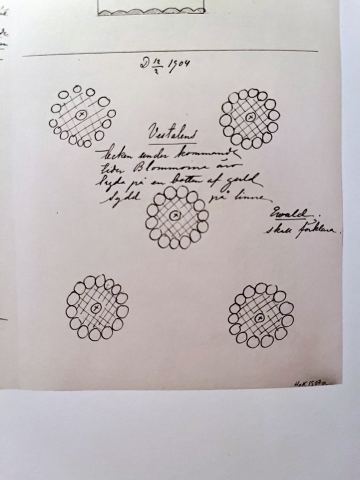 D 12/2 1904
Vestalens
tecken under kommande
tider Blommorna äro
bryda på en botten af guld
sydd på linne
Ewald
skall förklara.
HaK 1559a